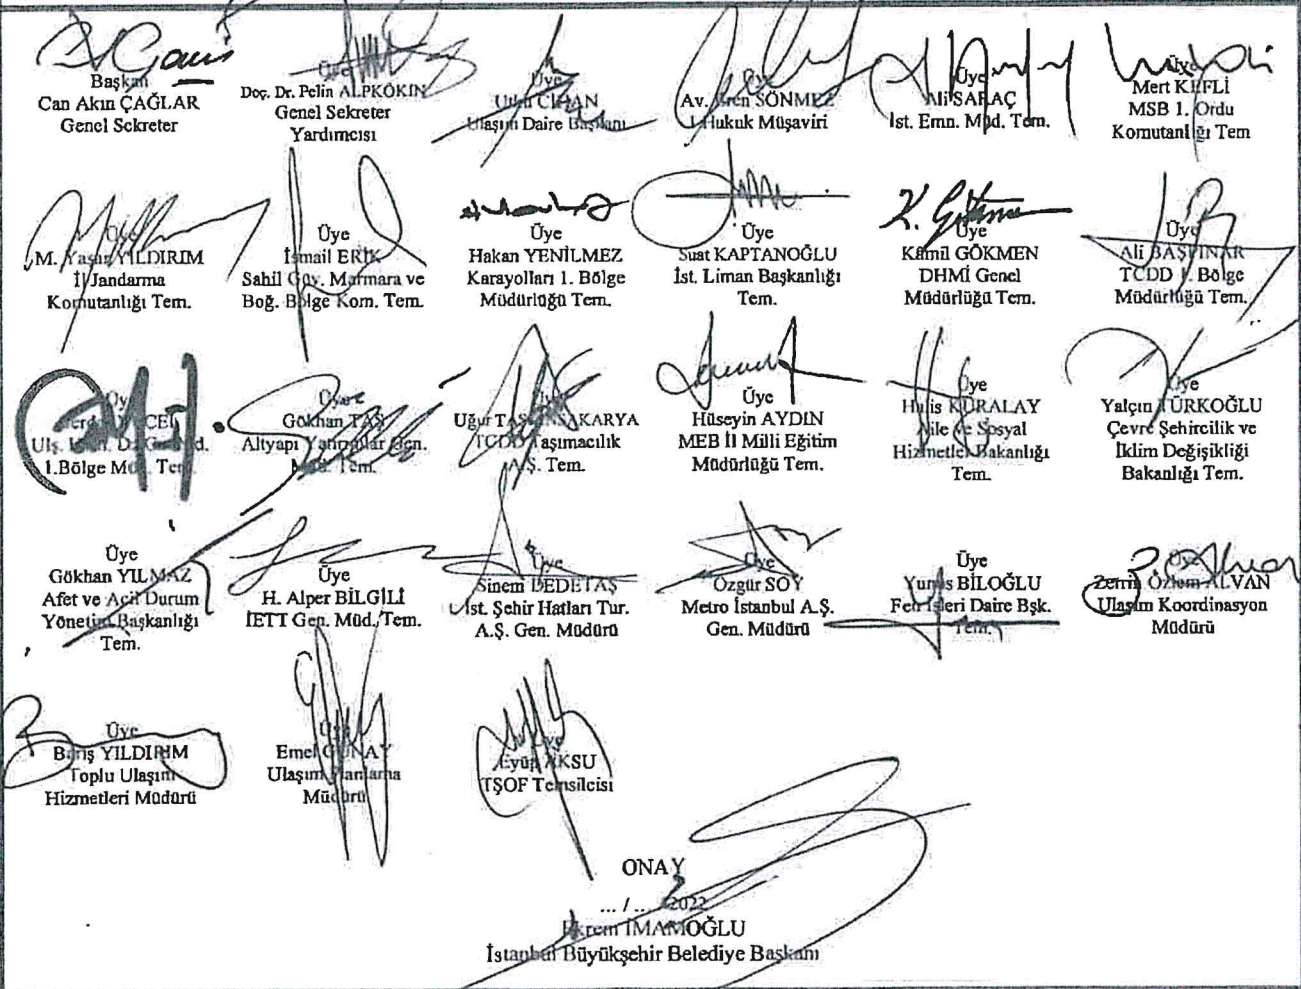 Başkan
Can Akın ÇAĞLAR
Genel Sekreter
Üye
Doç. Dr. Pelin ALPKÖKİN
Genel Sekreter
Yardımcısı
Üye
Utku CİHAN
Ulaşım Daire Başkanı
Üye
Av. Eren SÖNMEZ
1. Hukuk Müşaviri
Üye
Ali SARAÇ
İst. Emn. Müd. Tem.
Üye
Mert KEFLİ
MSB 1. Ordu
Komutanlığı Tem
Üye
M. Yaşar YILDIRIM
İl Jandarma
Komutanlığı Tem.
Üye
İsmail ERİK
Sahil Güv. Marmara ve
Boğ. Bölge Kom. Tem.
Üye
Hakan YENİLMEZ
Karayolları 1. Bölge
Müdürlüğü Tem.
Üye
Suat KAPTANOĞLU
İst. Liman Başkanlığı
Tem.
K. Gökmen
Üye
Kâmil GÖKMEN
DHMİ Genel
Müdürlüğü Tem.
Üye
Ali BAŞPINAR
TCDD 1. Bölge
Müdürlüğü Tem.
1.Bölge Müd. Tem.
Üye
Gökhan TAŞ
Altyapı Yatırımlar Gen.
Müd. Tem.
Uğur SAKARYA
TCDD Taşımacılık
A.Ş. Tem.
Üye
Hüseyin AYDIN
MEB İl Milli Eğitim
Müdürlüğü Tem.
Üye
Halis KURALAY
Aile ve Sosyal
Hizmetler Bakanlığı
Tem.
Üye
Yalçın TÜRKOĞLU
Çevre Şehircilik ve
İklim Değişikliği
Bakanlığı Tem.
Üye
Gökhan YILMAZ
Afet ve Acil Durum
Yönetim Başkanlığı
Tem.
Üye
H. Alper BİLGİLİ
İETT Gen. Müd. Tem.
Üye
Sinem DEDETAŞ
İst. Şehir Hatları Tur.
A.Ş. Gen. Müdürü
Üye
Özgür SOY
Metro İstanbul A.Ş.
Gen. Müdürü
Üye
Yunus BİLOĞLU
Fen İşleri Daire Bşk.
Tem.
Üye
Zerrin Özlem ALVAN
Ulaşım Koordinasyon
Müdürü
Üye
Barış YILDIRIM
Toplu Ulaşım
Hizmetleri Müdürü
Üye
Emel GÜNAY
Ulaşım Planlama
Müdürü
Üye
Eyüp AKSU
TŞOF Temsilcisi
ONAY
... / ... /2022
Ekrem İMAMOĞLU
İstanbul Büyükşehir Belediye Başkanı